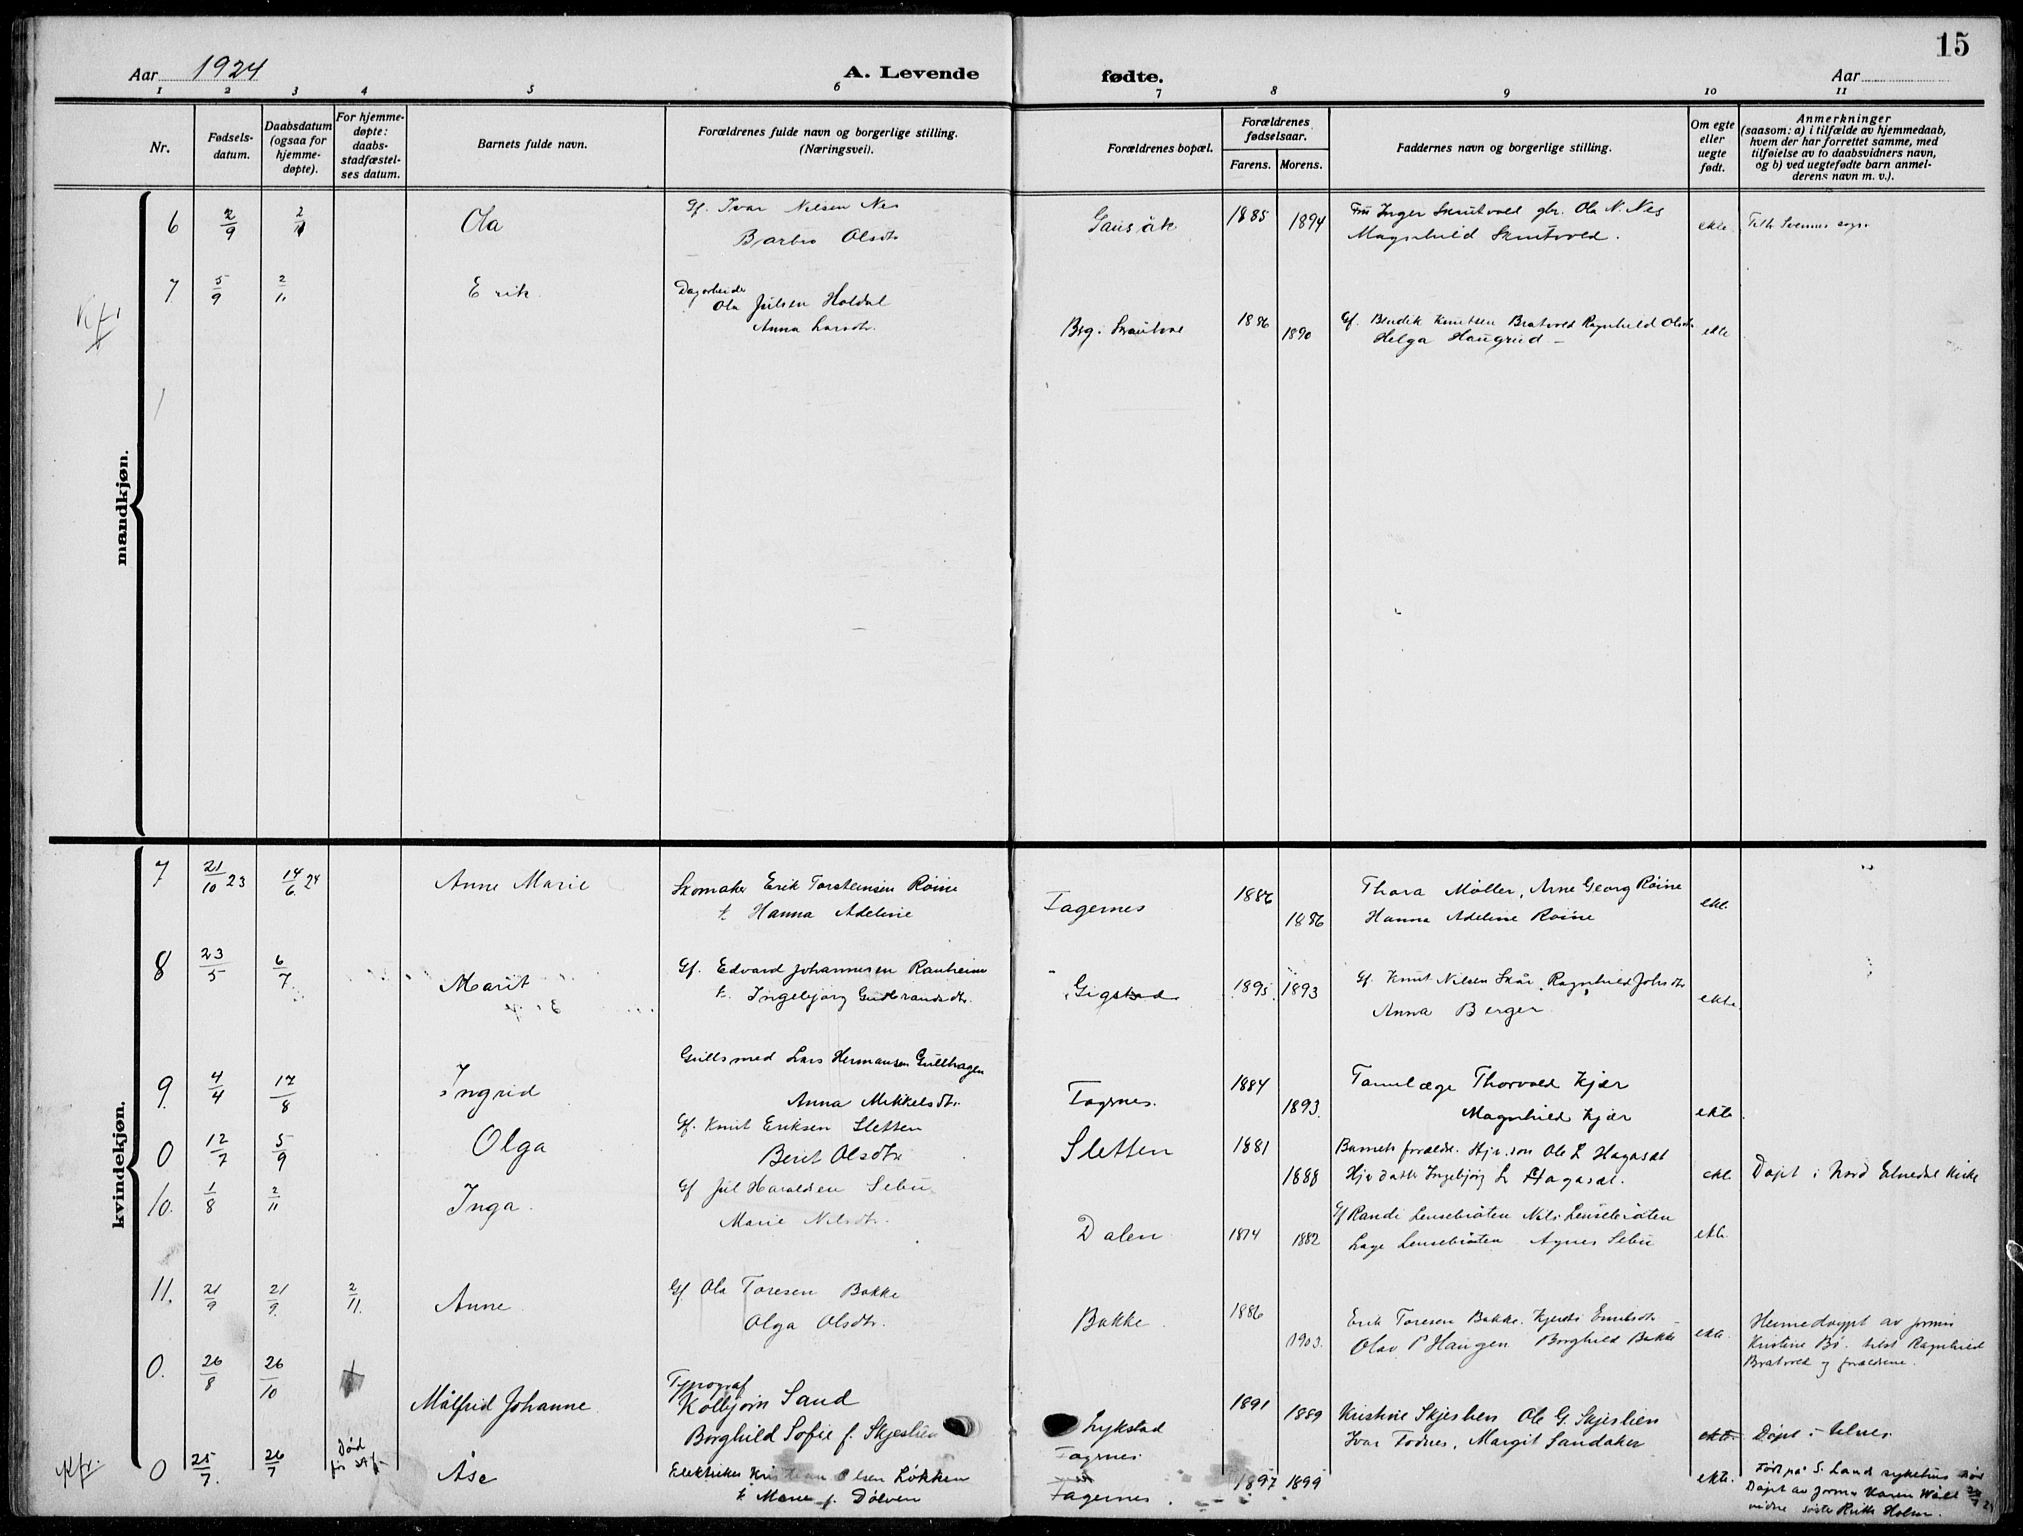 Aar 1924
A. Levende
fødte.
Aar
15
1 2 3 4 5 6 7 8 9 10 11
Nr.
Fødsels-
datum.
Daabsdatum
(ogsaa for
hjemme-
døpte).
For hjemme-
døpte:
daabs-
stadfæstel-
ses datum.
Barnets fulde navn.
Forældrenes fulde navn og borgerlige stilling.
(Næringsvei).
Forældrenes bopæl.
Forældrenes
fødselsaar.
Farens. Morens.
Faddernes navn og borgerlige stilling.
Om egte
eller
uegte
født.
Anmerkninger
(saasom: a) i tilfælde av hjemmedaab,
hvem der har forrettet samme, med
tilføielse av to daabsvidners navn,
og b) ved uegtefødte barn anmel-
derens navn m. v.).
mandkjøn.
6 2/9 2/11 Ola Gf. Ivar Nilsen Nes
Barbro Olsdtr
Gausåk 1885 1894 Fru Inger Skrutvold gbr. Ola N. Nes
Magnhild Skrutvold.
ekte.
7 5/9 2/11 Erik Dagarbeider
Ola Julsen Holdal
Anna Larsdtr.
1886 1890 Gf. Bendik Knutsen Bratvold Ragnhild Olsdtr
Helga Haugrud
ekte
kvindekjøn.
7 21/10 23 14/6 24 Anne Marie Skomaker Erik Torsteinsen Røine
k. Hanna Adeline
Fagernes 1886 1886 Thora Møller, Arne Georg Røine
Hanna Adeline Røine
ekt.
8 23/5 6/7 Marit Gf. Edvard Johannesen Ranheim
k. Ingebjørg Gudbrandsdtr.
Gigstad 1895 1893 Gf. Knut Nilsen Skår, Ragnhild Johsdtr
Anna Berger
ekte.
9. 4/4 17/8 Ingrid Gullsmed Lars Hermansen Gullhagen
Anna Mikkelsdtr.
Fagernes. 1884 1893. Tannlæge Thorvald Kjær
Magnhild Kjær
ekte.
0 12/7 5/9 Olga Gf. Knut Eriksen Sletten
Berit Olsdtr
Sletten 1881 1888 Barnets foreldre. Hjv. søn Ole L Hagaset
Hjv datter Ingebjørg L Hagaset.
ekt. Døpt i Nord Etnedal kirke
10. 1/8 2/11 Inga. Gf Jul Haraldsen Sebu
Marie Nilsdtr.
Dalen 1874 1882 Gf Randi Lensebråten Nils Lensebråten
Lage Lensebråten Agnes Sebu
ekte.
11. 21/9 21/9. 2/11. Anne Gf. Ola Toresen Bakke
Olga Olsdtr.
Bakke 1886 1903. Erik Toresen Bakke.
Olav P Haugen Borghild Bakke
ekte. Hjemedøypt av jormor
Kristine Bø. tilst Ragnhild
Bratvold og foreldrene.
0. 26/8 26/10 Målfrid Johanne Typograf
Kolbjørn Sand
Borghild Sofie f. Skjeslien
Lykstad
Fagernes
1891 1889 Kristine Skjeslien Ole G. Skjeslien
Ivar Fodnes, Margit Sandaker
ekte. Døpt i Ulnes
Kfr. 0 25/7. 26/7 Død
Åse Elektriker Kristian Olsen Løkken
k. Marie f. Dølven
Fagernes. 1897 1899 ekte. Født på S. Land sykehus død
Døpt av jormor Karen Wåle
vidne søster Rikke Holm.